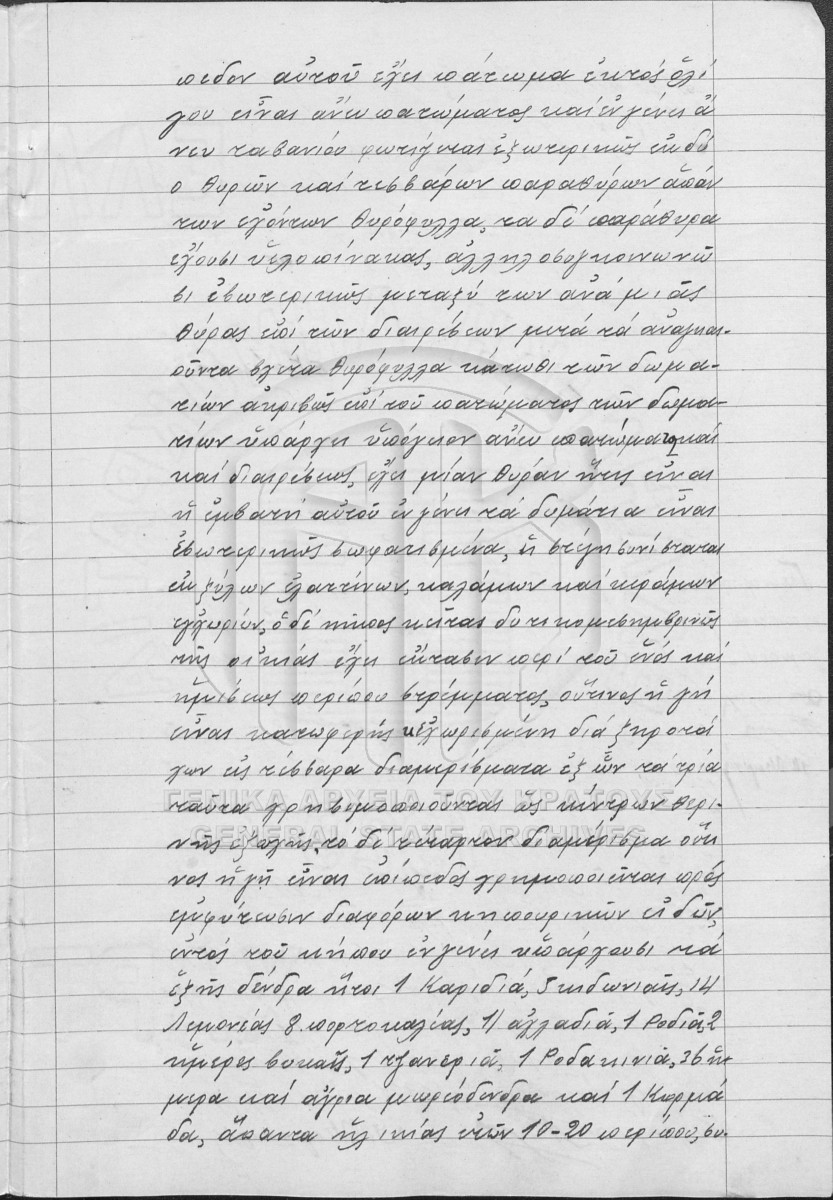 πεδον αὐτοῦ ἔχει πάτωμα ἐκτός ὀλί
γου εἶναι ἄνευ πατώματος καί ἐν γένει ἄ
νευ ταβανίου φωτίζεται ἐξωτερικῶς ἐκ δύ
ο θυρῶν καί τεσσάρων παραθύρων ἁπάν
των ἐχόντων θυρόφυλλα, τα δέ παράθυρα
ἔχουσι ὑελοπίνακας, ἀλληλοσυγκοινωνοῦ
σι ἐσωτερικῶς μεταξύ των ἀνά μιᾶς
θύρας ἐπί τῶν διαιρέσεων μετά τά ἀναγκαι-
οῦντα σχέτα θυρόφυλλα κάτωθι τῶν δωμα-
τίων ἀκριβῶς ἐπί τοῦ πατώματος τῶν δωμα-
τίων ὑπάρχει ὑπόγειον ἄνευ πατώματος καί
καί διαιρέσεως, ἔχει μίαν θύραν ἥτις εἶναι
ἡ ἐμβατή αὐτοῦ ἐν γένει τά δομάτια εἶναι
ἐσωτερικῶς σωφατισμένα, ἡ στέγη συνίσταται
ἐκ ξύλων ἐλατίνων, καλάμων καί κεράμων
ἐγχωρίων, ὁ δέ κῆπος κεῖται δυτικομεσημβρινῶς
τῆς οἰκίας ἔχει ἔκτασιν περί τοῦ ἑνός καί
ἡμίσεως περίπου στρέμματος, οὕτινος ἡ γῆ
εἶναι κατωφερής κεχωρισμένη διά ξηροτοί
χων εἰς τέσσαρα διαμερίσματα ἐξ ὧν τά τρία
ταῦτα χρησιμοποιοῦνται ὡς κέντρων θερι-
νῆς ἐξοχῆς, τό δέ τέταρτον διαμέρισμα οὕτι
νος ἡ γῆ εἶναι ἐπίπεδος χρησιμοποιεῖται πρός
ἐμφύτευσιν διαφόρων κηπουρικῶν εἰδῶν,
ἐντός τοῦ κήπου ἐν γένει ὑπάρχουσι τά
ἑξῆς δένδρα ἤτοι 1 Καριδιά, 5 κιδωνιαῖς, 14
Λεμονέας 8 πορτοκαλέας, 11 ἀχλαδιά, 1 Ροδιά, 2
ἡμέρες συκαῖς, 1 τζανεριά, 1 Ροδακινιά, 26 ἥ-
μερα καί ἄγρια μωρεόδενδρα καί 1 Κορμά
δα, ἅπαντα ἡλικίας ἐτῶν 10-20 περίπου, συ-
ΓΕΝΙΚΑ ΑΡΧΕΙΑ ΤΟΥ ΚΡΑΤΟΥΣ
GENERAL STATE ARCHIVES